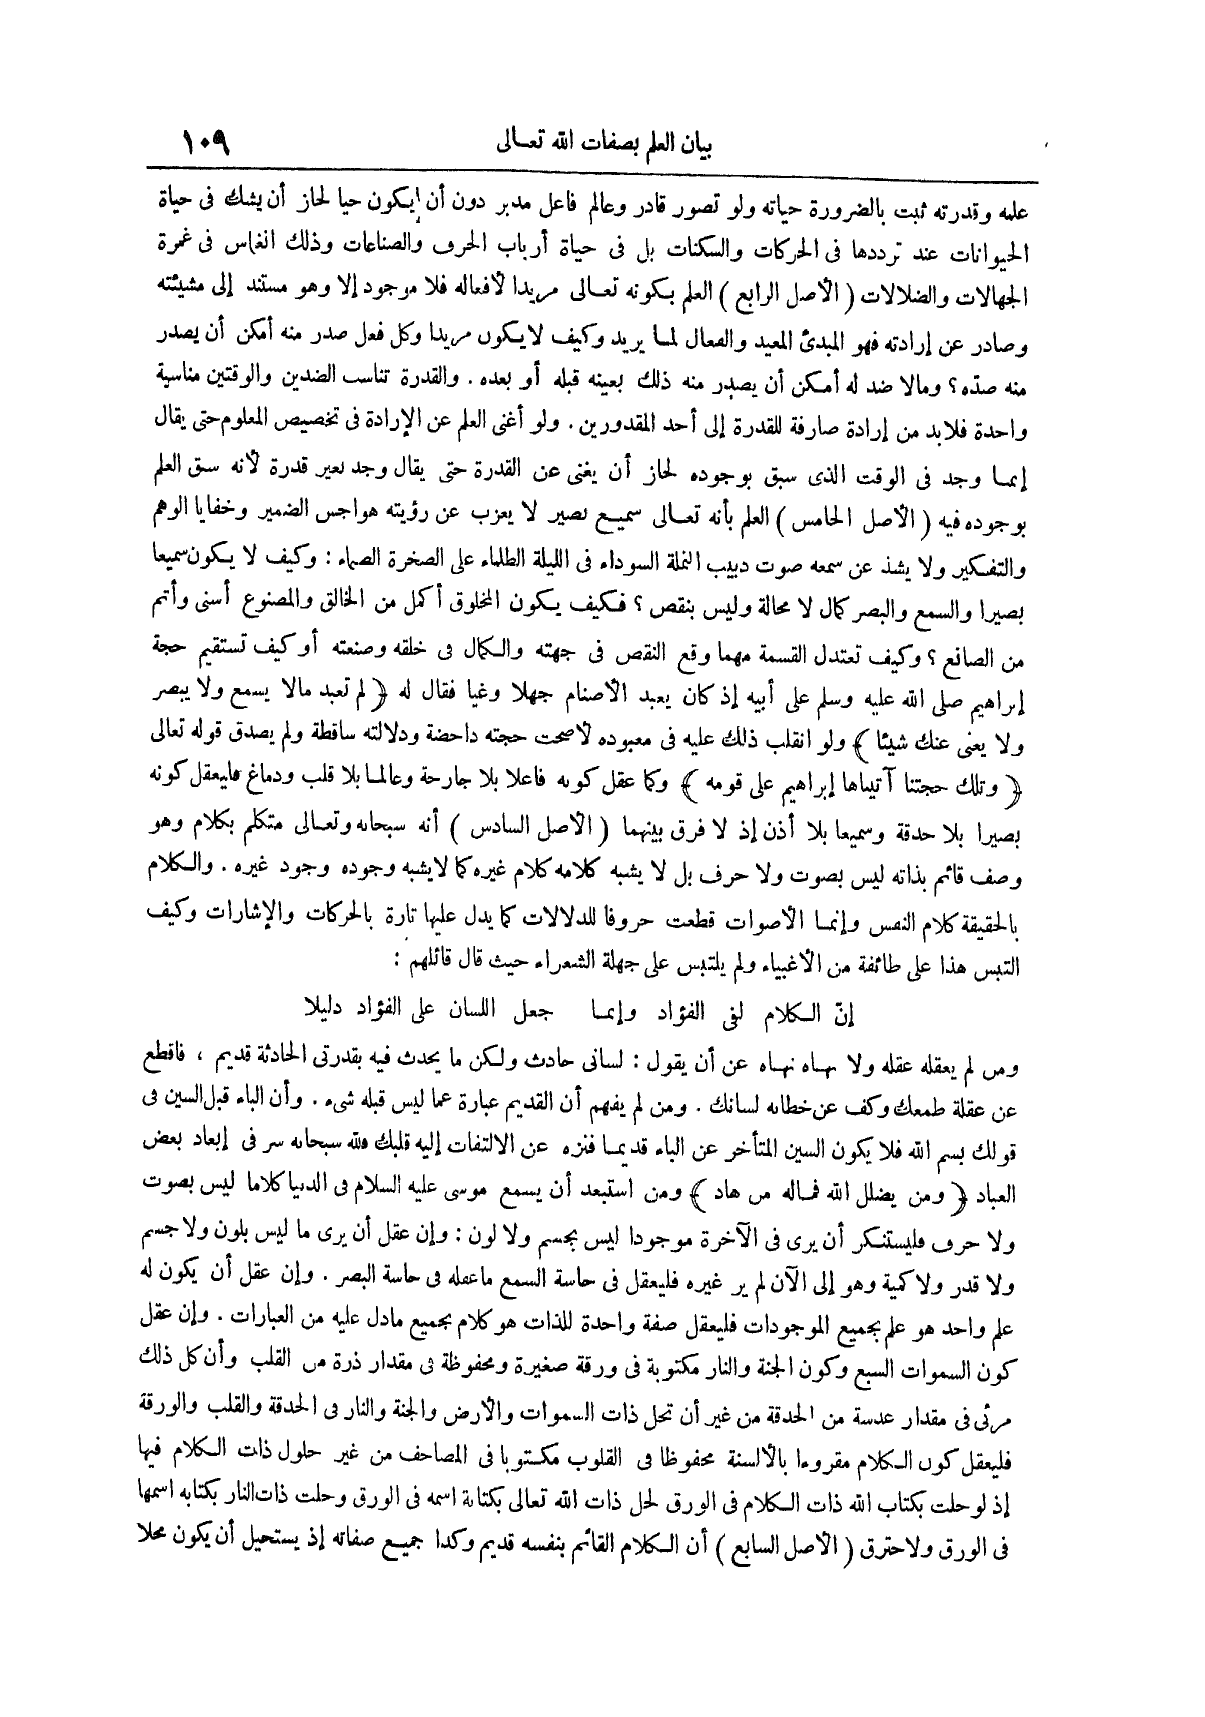 بيان العلم بصفات الله تعالى
١٠٩
علمه وقدرته ثبت بالضرورة حياته ولو تصور قادر وعالم فاعل مدبر دون أن يكون حيا لجاز أن يشك فى حياة
الحيوانات عند ترددها فى الحركات والسكنات بل فى حياة أرباب الحرف والصناعات وذلك انغماس فى غمرة
الجهالات والضلالات ( الأصل الرابع ) العلم بكونه تعالى مريدا لأفعاله فلا موجود إلا وهو مستند إلى مشيئته
وصادر عن إرادته فهو المبدئ المعيد والفعال لما يريد وكيف لا يكون مريدا وكل فعل صدر منه أمكن أن يصدر
منه ضده ؟ ومالا ضد له أمكن أن يصدر منه ذلك بعينه قبله أو بعده . والقدرة تناسب الضدين والوقتين مناسبة
واحدة فلابد من إرادة صارفة للقدرة إلى أحد المقدورين . ولو أغنى العلم عن الإرادة فى تخصيص المعلوم حتى يقال
إنما وجد فى الوقت الذى سبق بوجوده لجاز أن يغنى عن القدرة حتى يقال وجد بغير قدرة لأنه سبق العلم
بوجوده فيه ( الأصل الخامس ) العلم بأنه تعالى سميع بصير لا يعزب عن رؤيته هواجس الضمير وخفايا الوهم
والتفكير ولا يشذ عن سمعه صوت دبيب النملة السوداء فى الليلة الظلماء على الصخرة الصماء : وكيف لا يكون سميعا
بصيرا والسمع والبصر كمال لا محالة وليس بنقص ؟ فكيف يكون المخلوق أكمل من الخالق والمصنوع أسنى وأتم
من الصانع ؟ وكيف تعتدل القسمة مهما وقع النقص فى جهته والكمال فى خلقه وصنعته أو كيف تستقيم حجة
إبراهيم صلى الله عليه وسلم على أبيه إذ كان يعبد الأصنام جهلا وغيا فقال له ﴿ لم تعبد مالا يسمع ولا يبصر
ولا يغنى عنك شيئا ﴾ ولو انقلب ذلك عليه فى معبوده لأضحت حجته داحضة ودلالته ساقطة ولم يصدق قوله تعالى
﴿ وتلك حجتنا آتيناها إبراهيم على قومه ﴾ وكما عقل كونه فاعلا بلا جارحة وعالما بلا قلب ودماغ فليعقل كونه
بصيرا بلا حدقة وسميعا بلا أذن إذ لا فرق بينهما ( الأصل السادس ) أنه سبحانه وتعالى متكلم بكلام وهو
وصف قائم بذاته ليس بصوت ولا حرف بل لا يشبه كلامه كلام غيره كما لا يشبه وجوده وجود غيره . والكلام
بالحقيقة كلام النفس وإنما الأصوات قطعت حروفا للدلالات كما يدل عليها تارة بالحركات والإشارات وكيف
التبس هذا على طائفة من الأغبياء ولم يلتبس على جهلة الشعراء حيث قال قائلهم :
إنّ الكلام لفى الفؤاد وإنما   جعل اللسان على الفؤاد دليلا
ومن لم يعقله عقله ولا نهاه نهاه عن أن يقول : لسانى حادث ولكن ما يحدث فيه بقدرتى الحادثة قديم ، فاقطع
عن عقلة طمعك وكف عن خطابه لسانك . ومن لم يفهم أن القديم عبارة عما ليس قبله شىء . وأن الباء قبل السين فى
قولك بسم الله فلا يكون السين المتأخر عن الباء قديما فنزه عن الالتفات إليه قلبك فلله سبحانه سر فى إبعاد بعض
العباد ﴿ ومن يضلل الله فماله من هاد ﴾ ومن استبعد أن يسمع موسى عليه السلام فى الدنيا كلاما ليس بصوت
ولا حرف فليستنكر أن يرى فى الآخرة موجودا ليس بجسم ولا لون : وإن عقل أن يرى ما ليس بلون ولا جسم
ولا قدر ولا كمية وهو إلى الآن لم ير غيره فليعقل فى حاسة السمع ما عقله فى حاسة البصر . وإن عقل أن يكون له
علم واحد هو علم بجميع الموجودات فليعقل صفة واحدة للذات هو كلام بجميع مادل عليه من العبارات . وإن عقل
كون السموات السبع وكون الجنة والنار مكتوبة فى ورقة صغيرة ومحفوظة فى مقدار ذرة من القلب وأن كل ذلك
مرئى فى مقدار عدسة من الحدقة من غير أن تحل ذات السموات والأرض والجنة والنار فى الحدقة والقلب والورقة
فليعقل كون الكلام مقروءا بالألسنة محفوظا فى القلوب مكتوبا فى المصاحف من غير حلول ذات الكلام فيها
إذ لو حلت بكتاب الله ذات الكلام فى الورق لحل ذات الله تعالى بكتابة اسمه فى الورق وحلت ذات النار بكتابة اسمها
فى الورق ولاحترق ( الأصل السابع ) أن الكلام القائم بنفسه قديم وكذا جميع صفاته إذ يستحيل أن يكون محلا